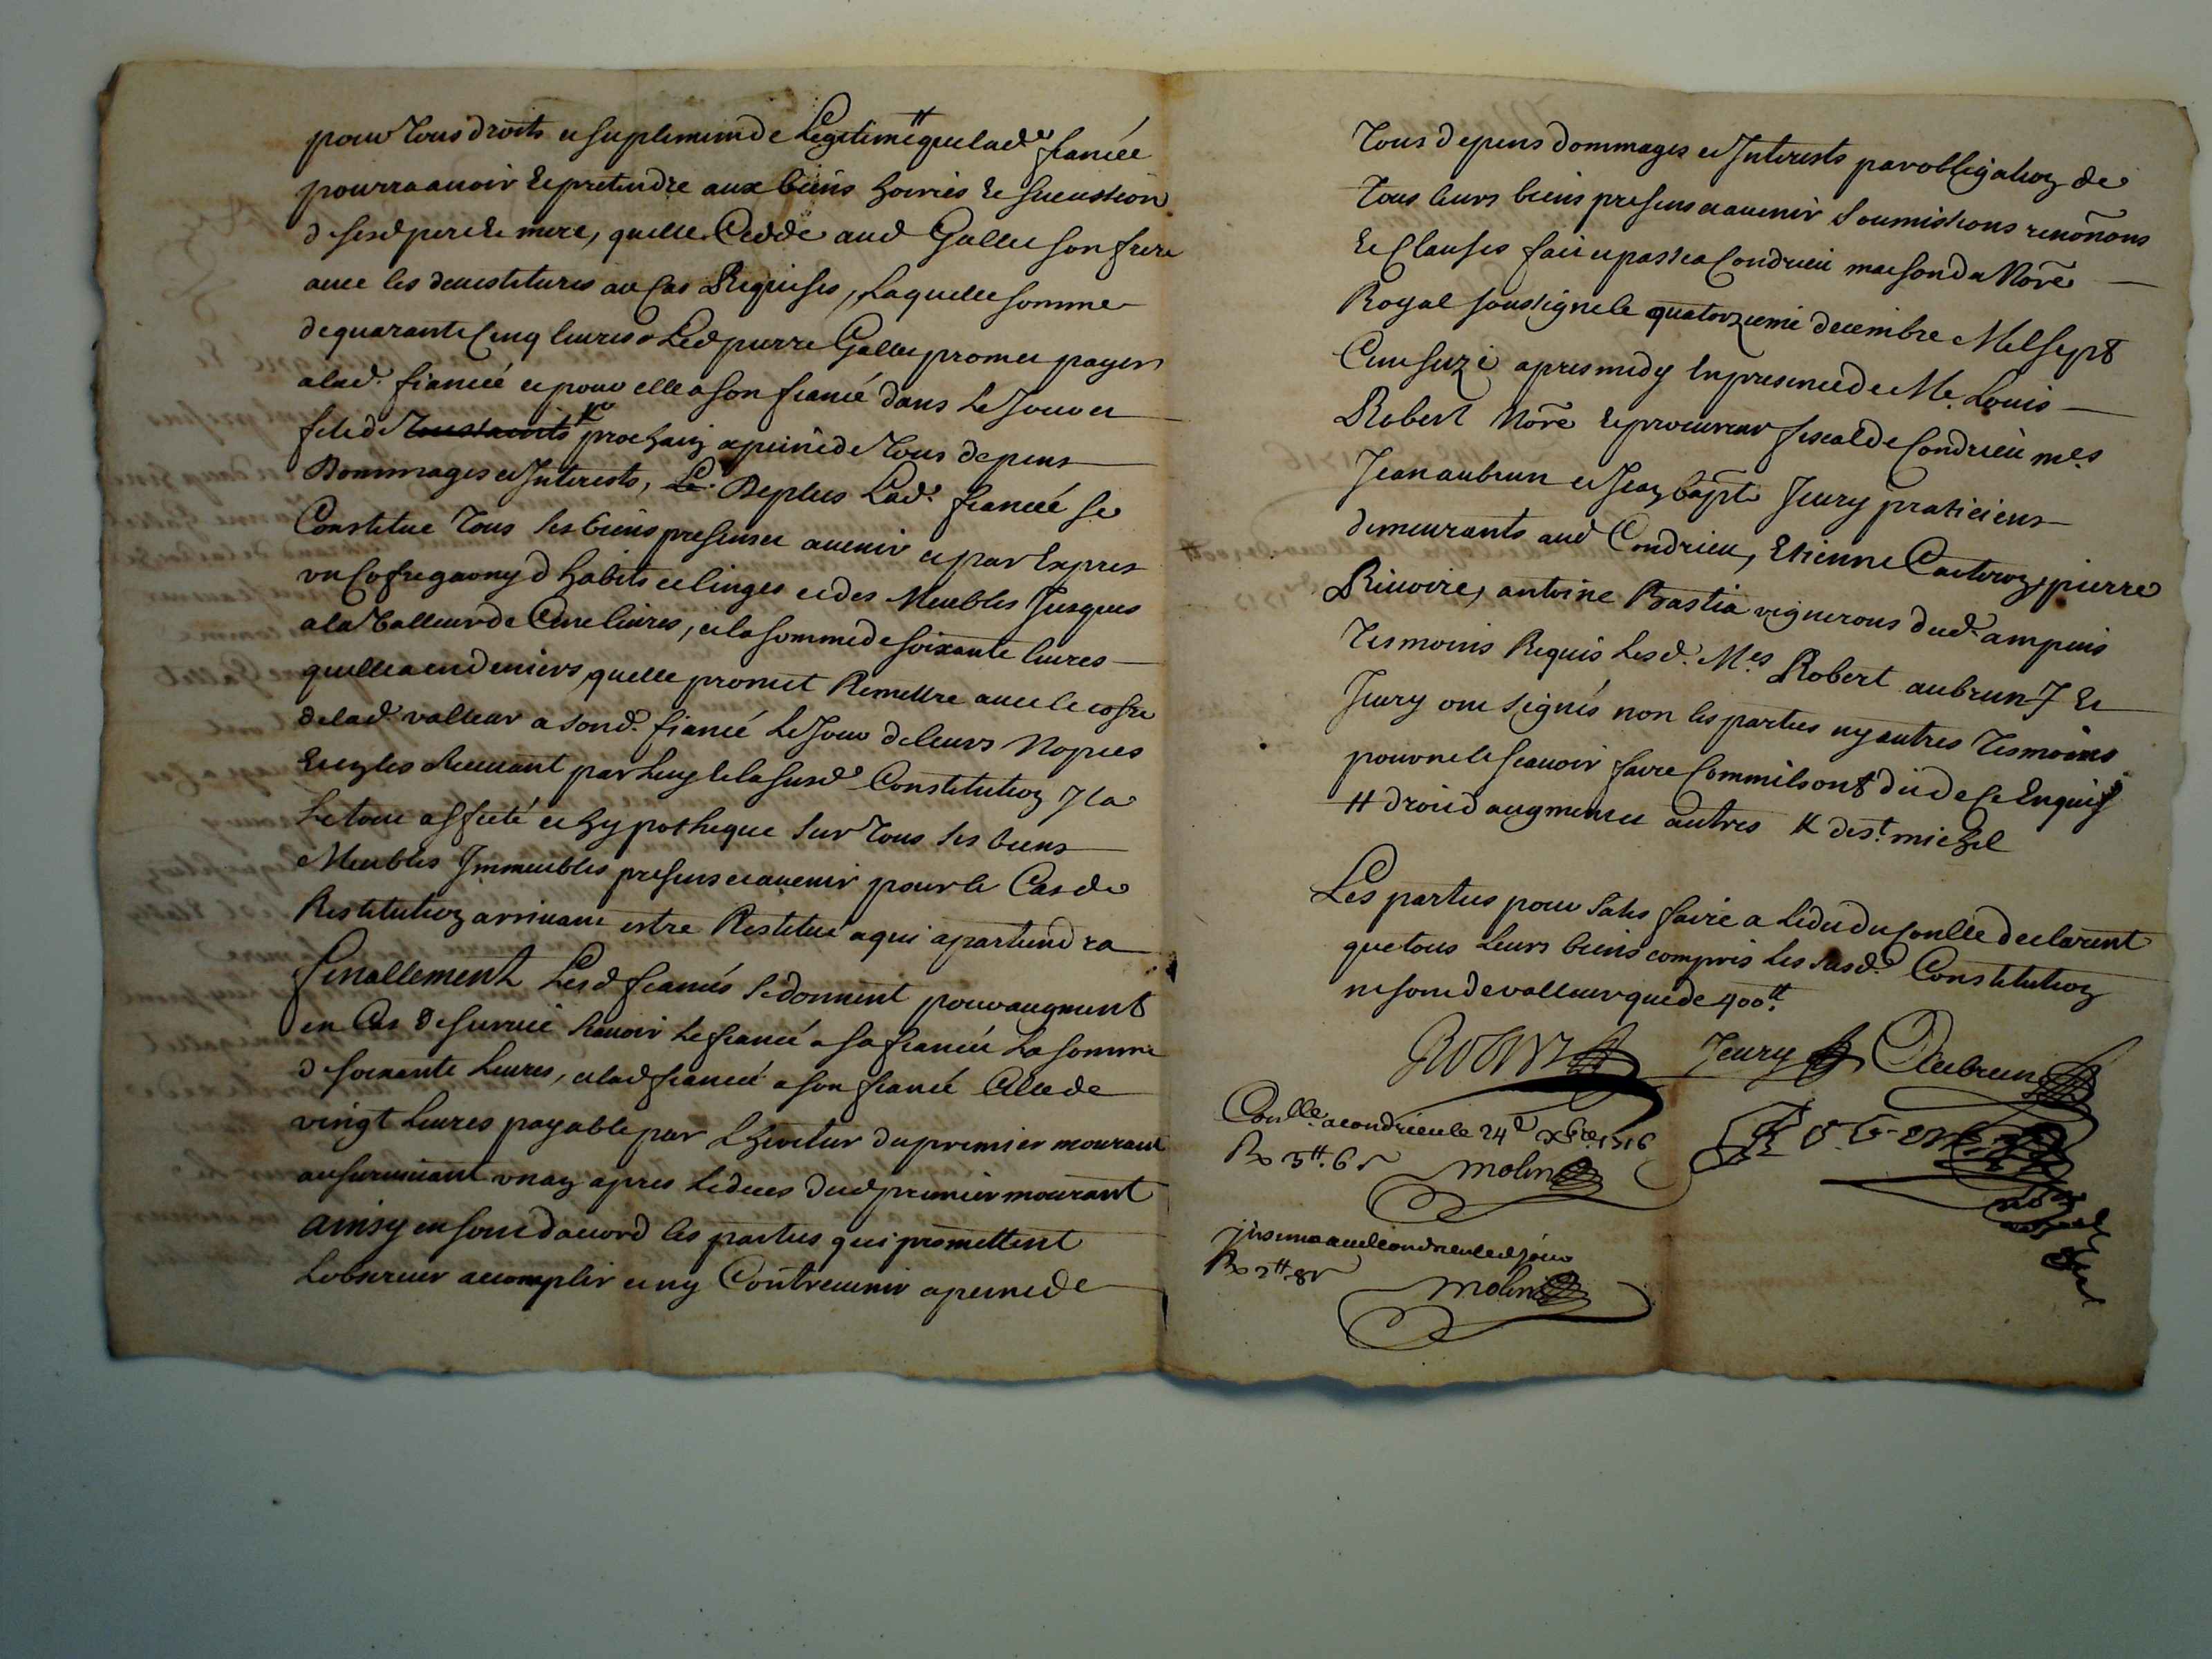 pour tous droits et suplement de Legitime # que lad.e fiancée
pourra avoir et pretendre aux biens hoiries et sucession
de sesd pere et mere, quelle Cedde aud Gallet son frere
avec les devestitures au Cas Requises, Laquelle somme
de quarante Cinq livres Led pierre Gallet promet payer
a lad. fiancée et pour elle a son fiancé dans le Jour et
feste de Toussaints prochain a peine de tous depens
Dommages et Interests, Le. Deplus Lad.e fiancée se
Constitue tous ses biens presens et avenir et par Expres
un Cofre garny d habits et linges et des Meubles Jusques
a la Valleur de Cinq livres, et la somme de soixante livres
quelle a en deniers, quelle promet Remettre avec le cofre
de lad valleur a sond. fiancé le Jour de leurs Nopces
par luy et la susd.e Constitution
Le tout affecté et hypotheque sur tous ses biens
Meubles Immeubles presens et avenir pour le Cas de
Restitution arrivant estre Restitué a qui apartiendra
finallement Lesd fiancés se donnent pour augment
en Cas de survie sçavoir le fiancé a sa fiancée la somme
de soixante livres, et lad fiancée a son fiancé Celle de
vingt livres payable par L heritier du premier mourant
au survivant un an apres le deces dud premier mourant
ainsy en sont d acord les parties qui promettent
L observer accomplir et ny Contrevenir a peine de
Tous depens dommages et Interests par obligation de
Tous leurs biens presens et avenir soumissions renõnons
Et Clauses fait et passé a Condrieu maison du Nore
Royal soussigné le quatorzieme decembre Mil sept
Cent seize apres midy En presence de Me. Louis
Robert Nore et procureur fiscal de Condrieu mes
Jean aubrun et Jean bapte Jeury praticiens
demeurants aud Condrieu, Etienne pierre
Rivoire, antoine Bastia vignerons dud. ampuis
Tesmoins Requis Lesd. Mes Robert aubrun Et
Jeury ont signés non les parties ny autres Tesmoins
pour ne le scavoir faire Comme ils ont dit de ce Enquis
# droit d augment et autres # de st. michel
Les parties pour satisfaire a ledit du Conlle declarent
que tous Leurs biens compris les susd.e Constitution
ne sont de valleur que de 400 #.
Jeury Aubrun
Conlle. a condrieu le 24e xbre. 1716
R 3 #. 6 s
molin
Robert
aud condrieu led jour
R 2 # 8 s
molin